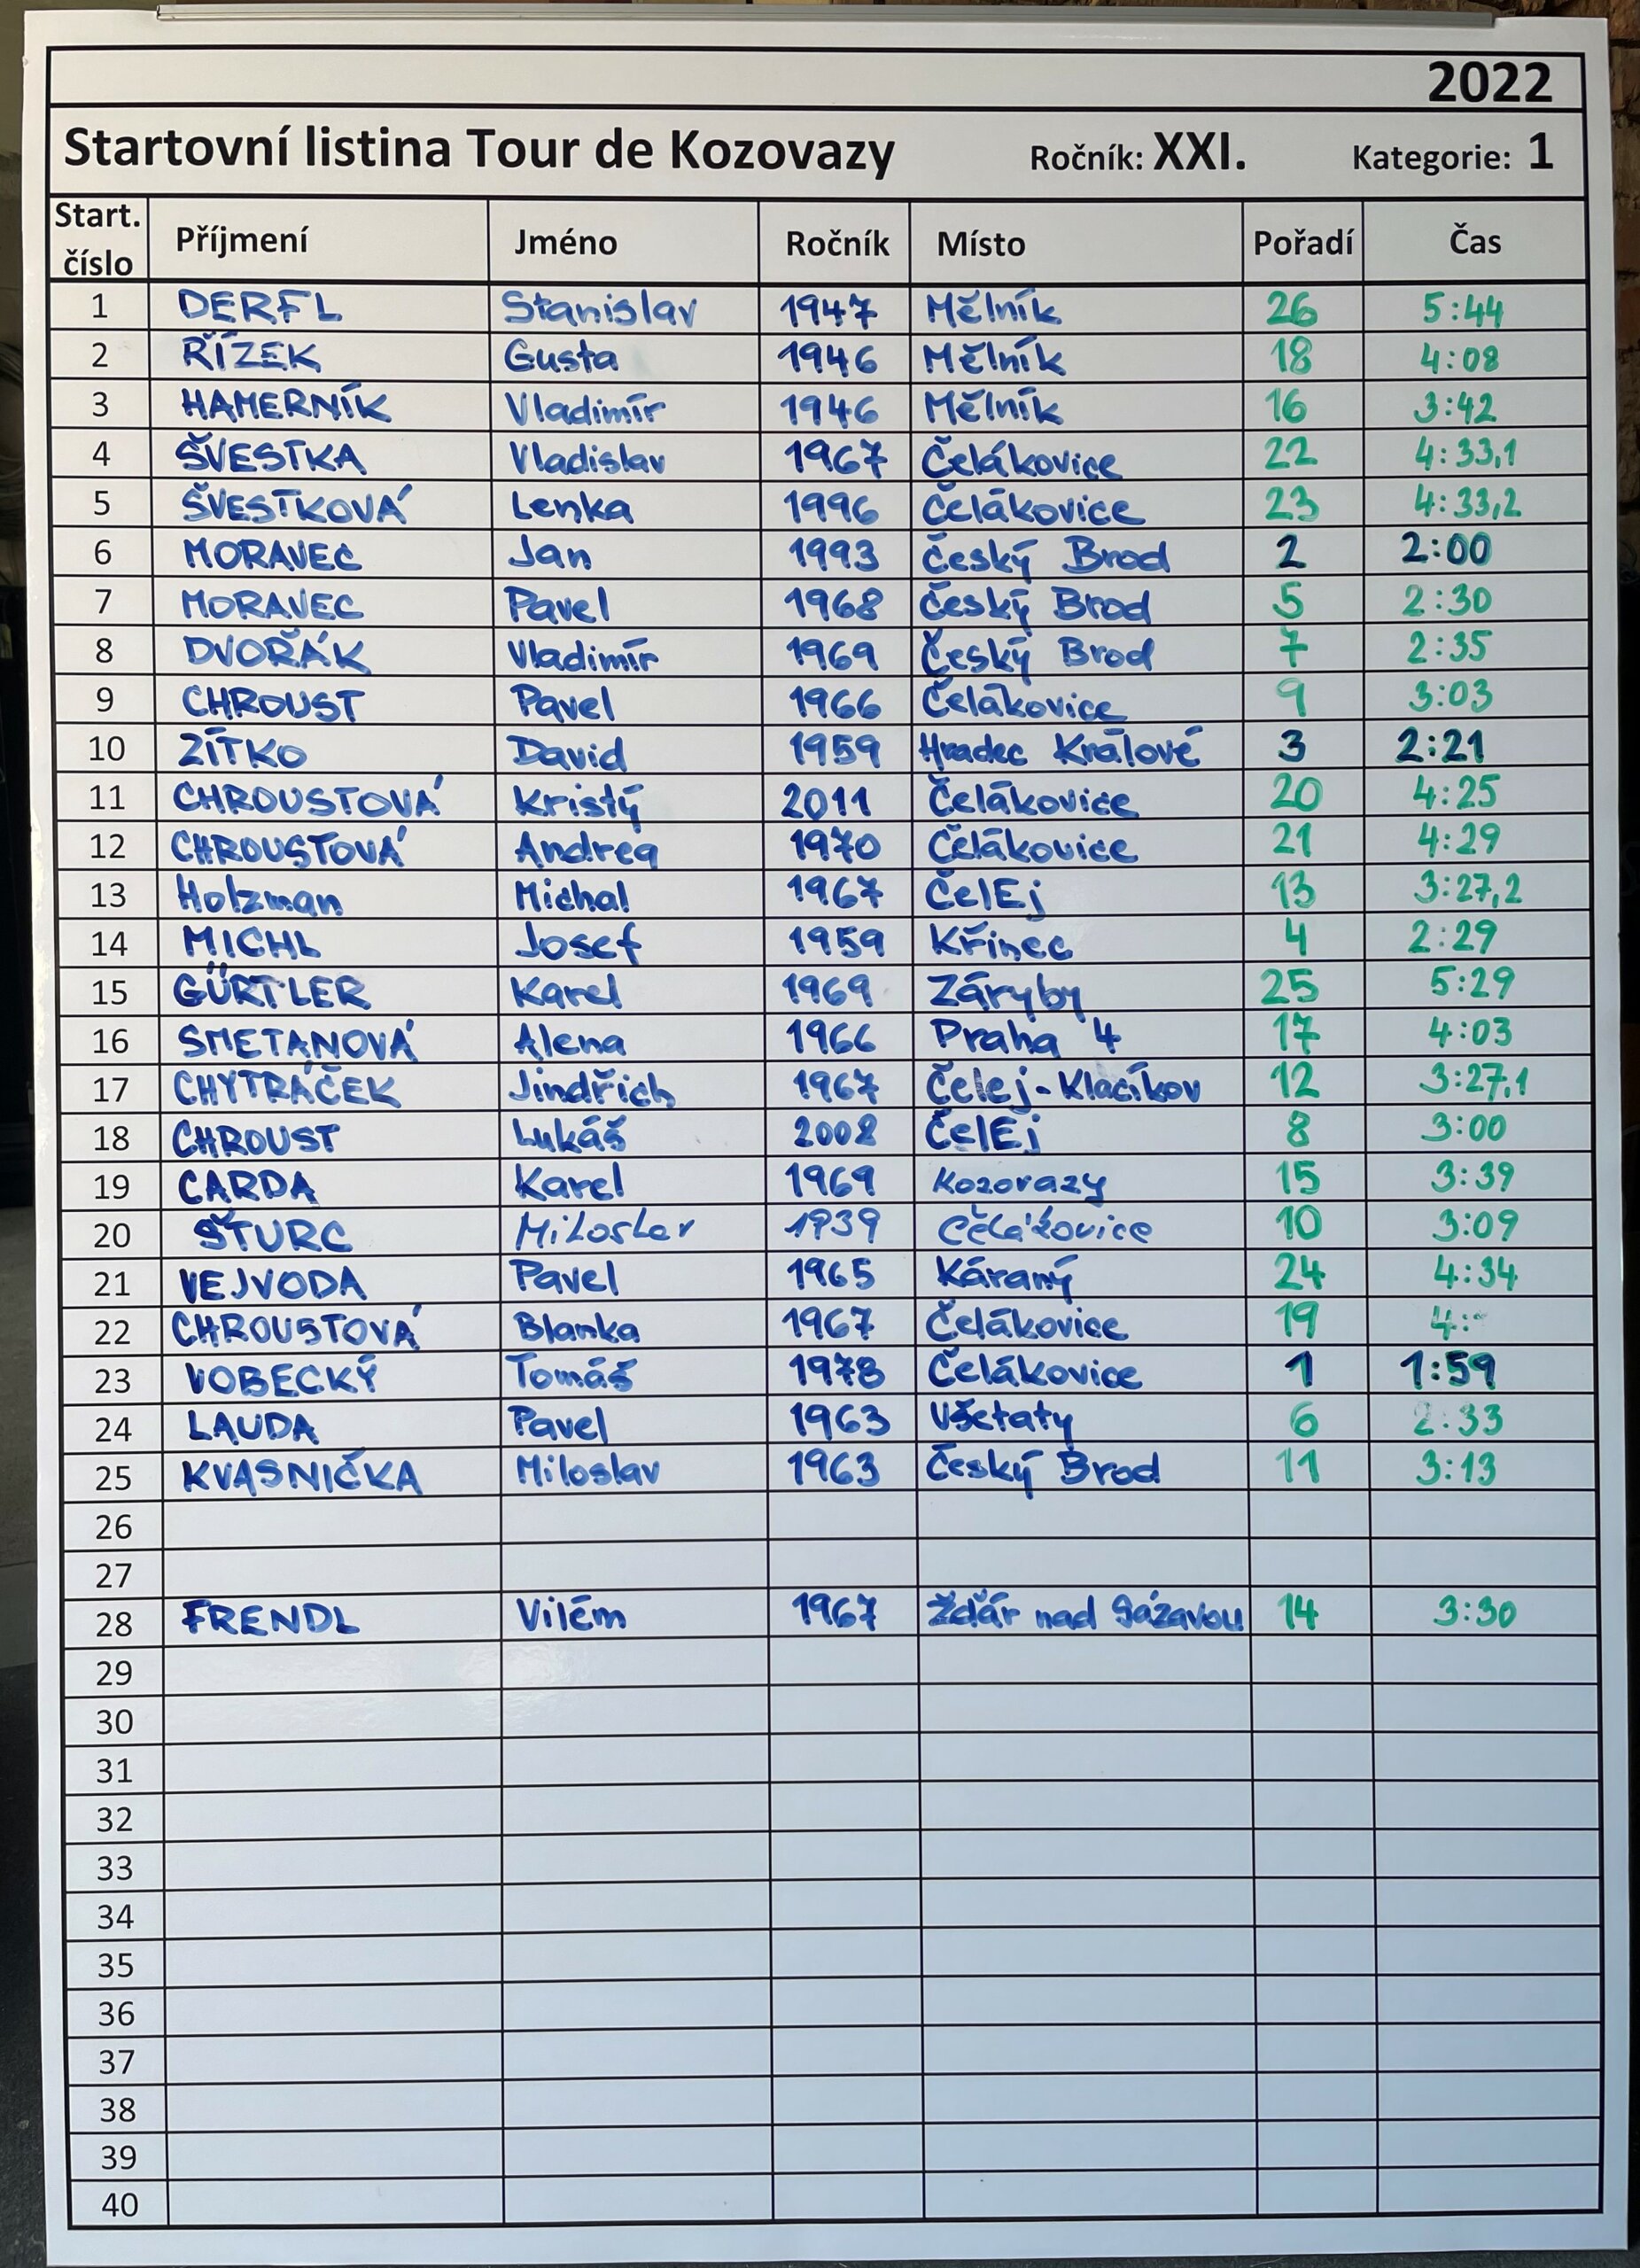 2022
Startovní listina Tour de Kozovazy Ročník: XXI. Kategorie: 1
Start. číslo Příjmení Jméno Ročník Místo Pořadí Čas
1 DERFL Stanislav 1947 Mělník 26 5:44
2 ŘÍZEK Gusta 1946 Mělník 18 4:08
3 HAMERNÍK Vladimír 1946 Mělník 16 3:42
4 ŠVESTKA Vladislav 1967 Čelákovice 22 4:33,1
5 ŠVESTKOVÁ Lenka 1996 Čelákovice 23 4:33,2
6 MORAVEC Jan 1993 Český Brod 2 2:00
7 MORAVEC Pavel 1968 Český Brod 5 2:30
8 DVOŘÁK Vladimír 1969 Český Brod 7 2:35
9 CHROUST Pavel 1966 Čelákovice 9 3:03
10 ZÍTKO David 1959 Hradec Králové 3 2:21
11 CHROUSTOVÁ Kristý 2011 Čelákovice 20 4:25
12 CHROUSTOVÁ Andrea 1970 Čelákovice 21 4:29
13 Holzman Michal 1967 ČelEj 13 3:27,2
14 MICHL Josef 1959 Křinec 4 2:29
15 GÜRTLER Karel 1969 Záryby 25 5:29
16 SMETANOVÁ Alena 1966 Praha 4 17 4:03
17 CHYTRÁČEK Jindřich 1967 Čelej-Klacíkov 12 3:27,1
18 CHROUST Lukáš 2002 ČelEj 8 3:00
19 CARDA Karel 1969 Kozovazy 15 3:39
20 ŠTURC Miloslav 1939 Čelákovice 10 3:09
21 VEJVODA Pavel 1965 Káraný 24 4:34
22 CHROUSTOVÁ Blanka 1967 Čelákovice 19 4:
23 VOBECKÝ Tomáš 1978 Čelákovice 1 1:59
24 LAUDA Pavel 1963 Všetaty 6 2:33
25 KVASNIČKA Miloslav 1963 Český Brod 11 3:13
26
27
28 FRENDL Vilém 1967 Žďár nad Sázavou 14 3:30
29
30
31
32
33
34
35
36
37
38
39
40